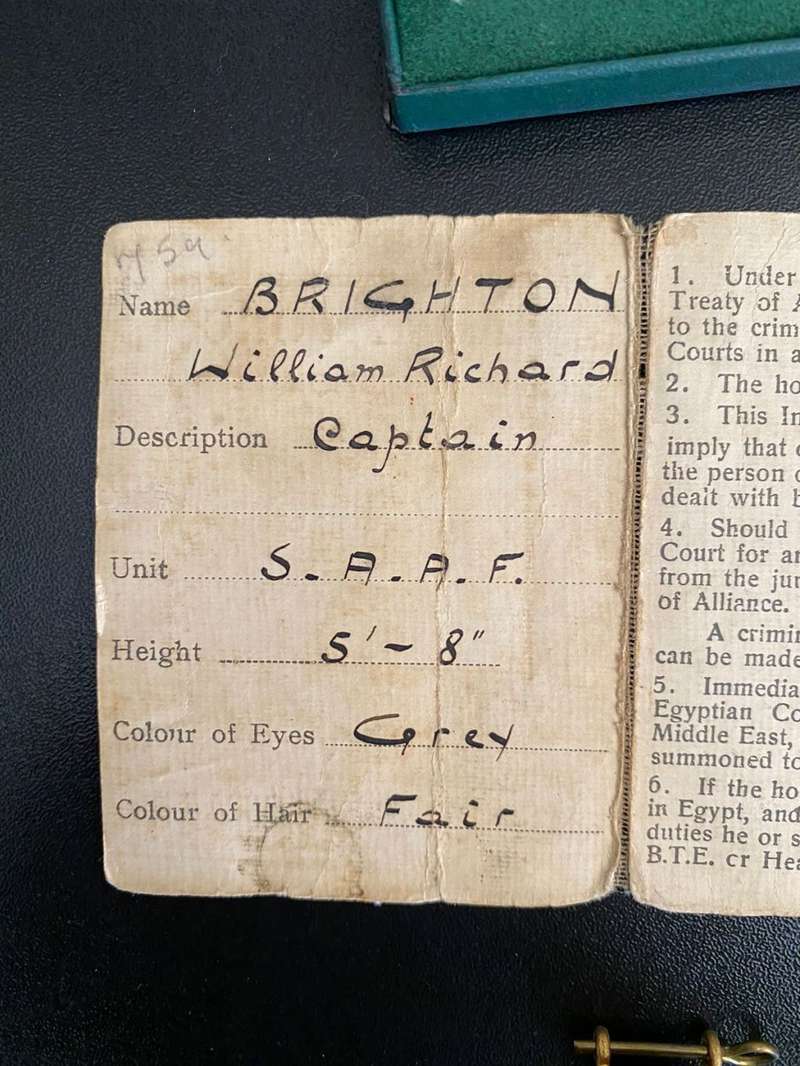 Name BRIGHTON
William Richard
Description Captain
Unit S.A.A.F.
Height 5' - 8"
Colour of Eyes Grey
Colour of Hair Fair
1. Under
Treaty of A
to the crim
Courts in a
2. The ho
3. This In
imply that
the person
dealt with b
4. Should
Court for an
from the jur
of Alliance.
A crimin
can be made
5. Immedia
Egyptian Co
Middle East,
summoned to
6. If the ho
in Egypt, and
duties he or s
B.T.E. cr Hea